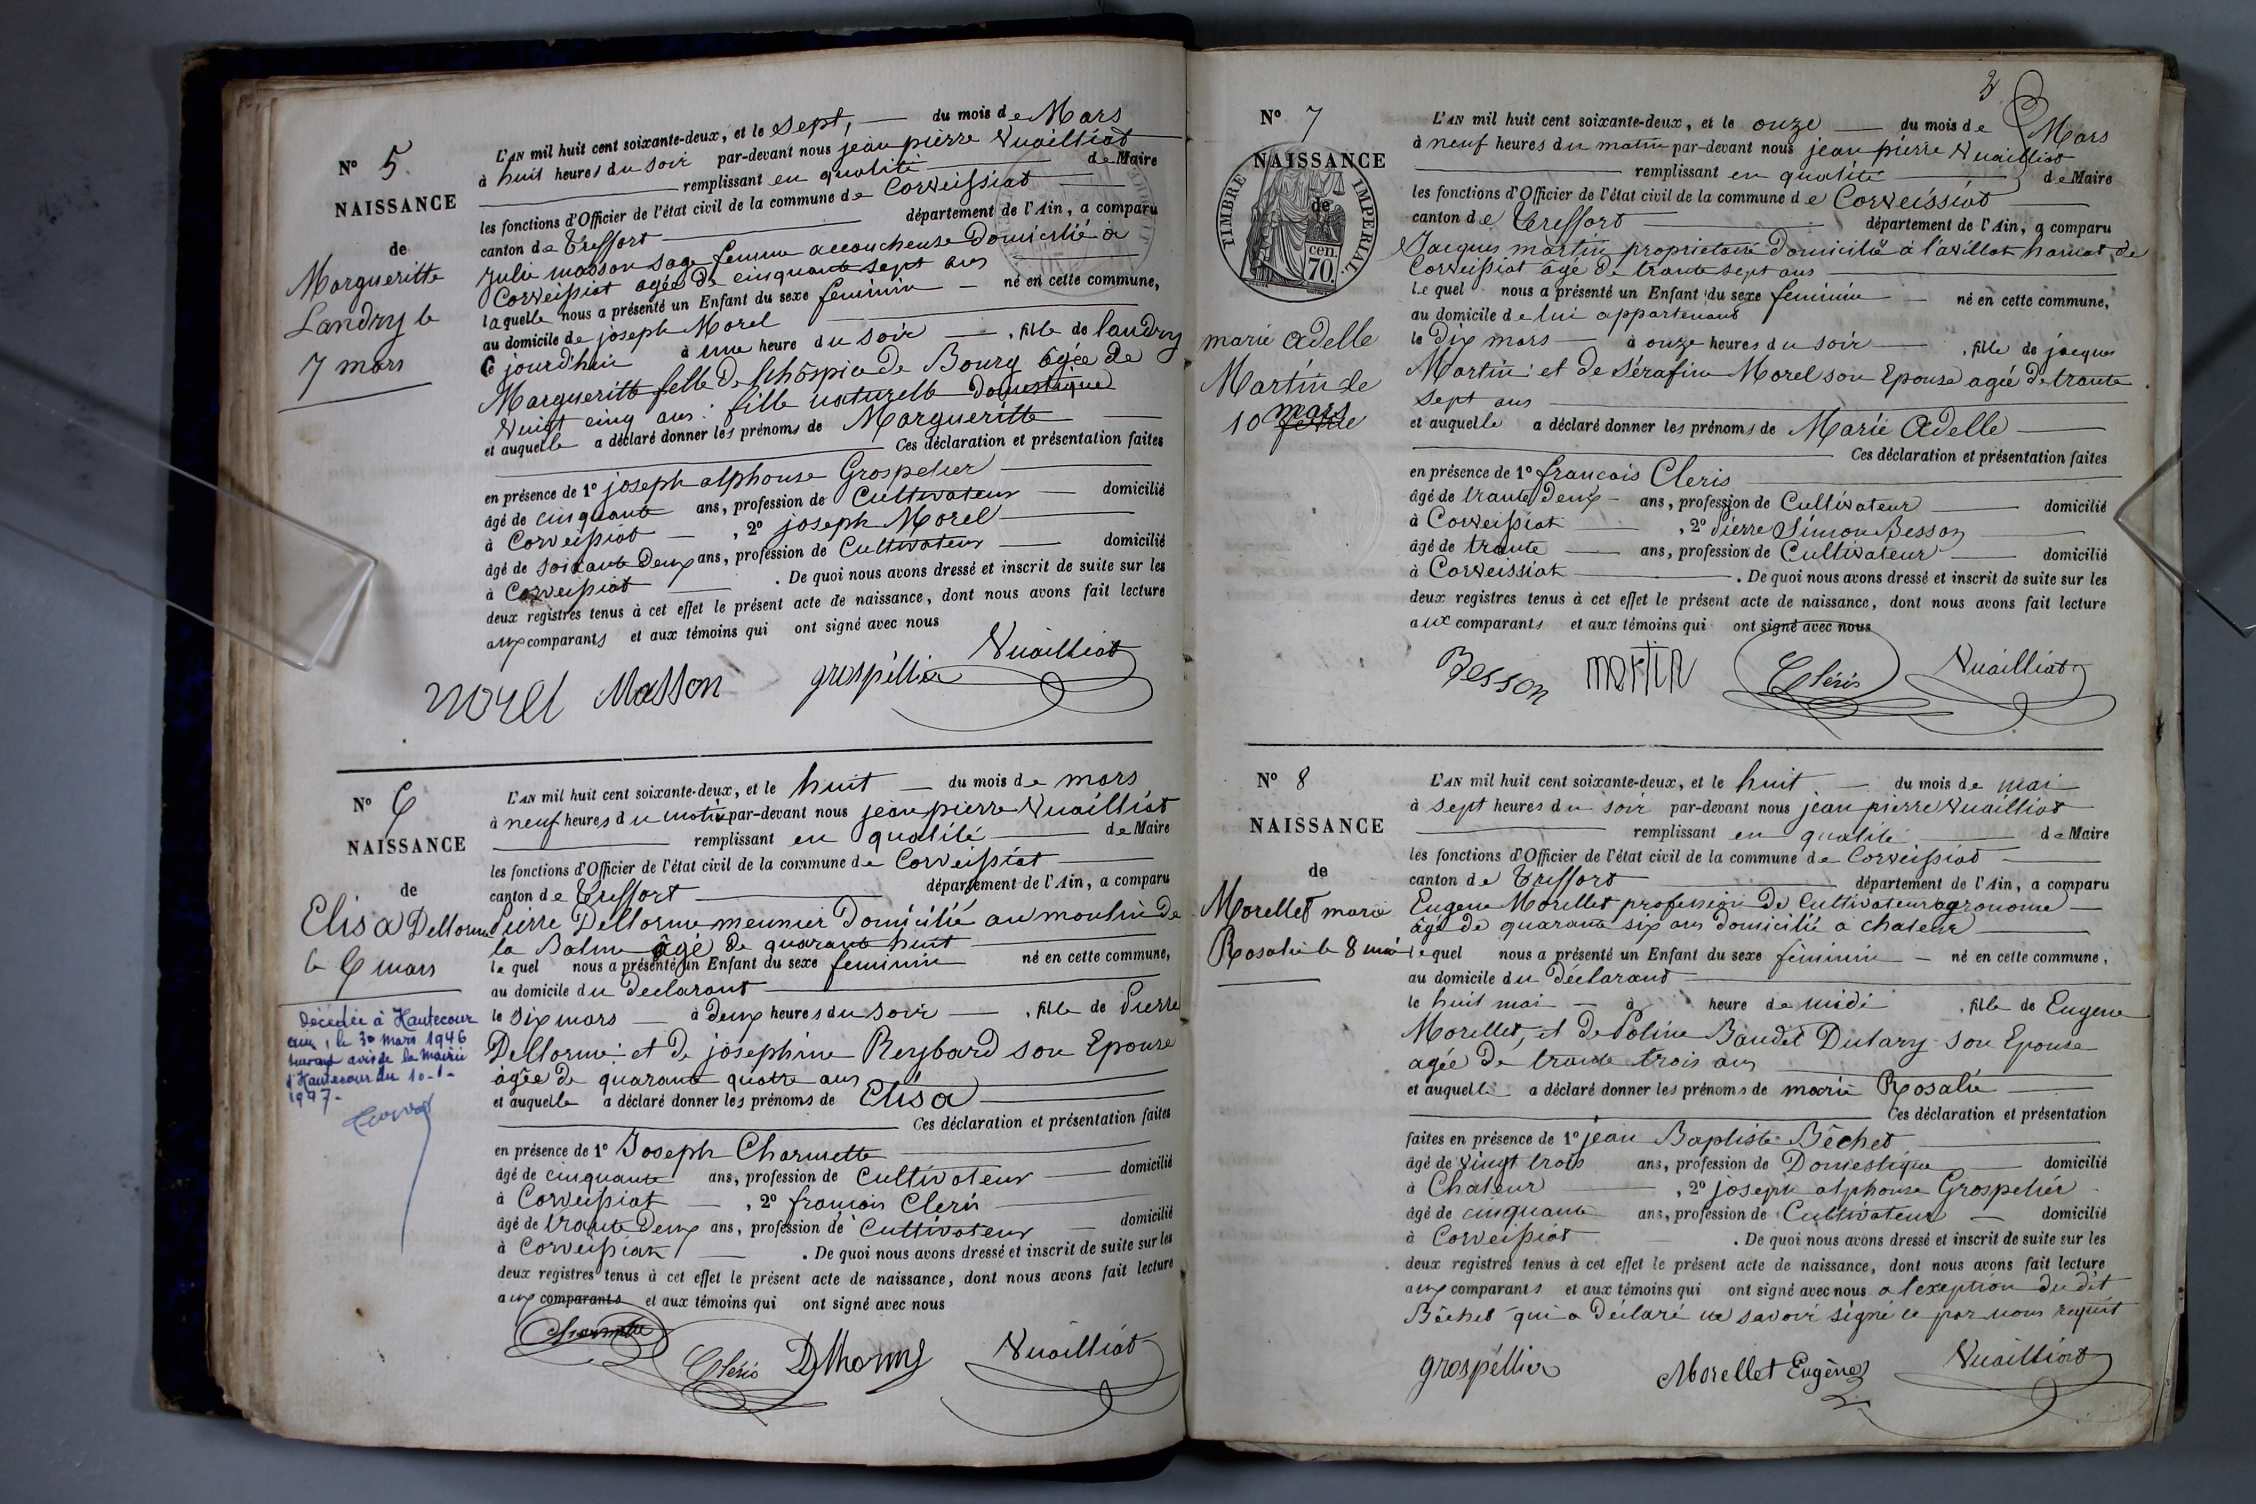 N° 5.
NAISSANCE
de
Margueritte
Landry le
7 mars
L'AN mil huit cent soixante-deux, et le sept, du mois de Mars
à huit heures du soir par-devant nous jean pierre Nuailliat
remplissant en qualité de Maire
les fonctions d'Officier de l'état civil de la commune de Corveissiat
canton de Treffort département de l'Ain, a comparu
Julie masson sage femme accoucheuse Domicilié a
Corveissiat agée de cinquante sept ans
laquelle nous a présenté un Enfant du sexe feminin né en cette commune,
au domicile de joseph Morel
Ce jourd'hui à une heure du soir, fille de landry
Margueritte fille De l'hospice de Bourg âgée de
Vuingt cinq ans. fille naturelle domestique
et auquelle a déclaré donner les prénoms de Margueritte
Ces déclaration et présentation faites
en présence de 1° joseph alphonse Grospelier
âgé de cinquante ans, profession de Cultivateur domicilié
à Corveissiat, 2° joseph Morel
âgé de soixante Deux ans, profession de Cultivateur domicilié
à Corveissiat. De quoi nous avons dressé et inscrit de suite sur les
deux registres tenus à cet effet le présent acte de naissance, dont nous avons fait lecture
aux comparants et aux témoins qui ont signé avec nous
morel Masson grospéllier Nuailliat
N° 6
NAISSANCE
de
Elisa Dellorme
le 6 mars
Décédée à Hautecour
Ain, le 30 mars 1946
suivant avis de la mairie
d'Hautecour du 10-1-
1947-
L'AN mil huit cent soixante-deux, et le huit du mois de mars
à neuf heures du matin par-devant nous jean pierre Nuailliat
remplissant en qualité de Maire
les fonctions d'Officier de l'état civil de la commune de Corveissiat
canton de Treffort département de l'Ain, a comparu
Pierre Dellorme meunier Domicilié au moulin De
la Balme âgé de quarante huit
lequel nous a présenté un Enfant du sexe feminin né en cette commune,
au domicile du Declarant
le six mars à deux heures du soir, fille de Pierre
Dellorme et de josephine Reybard son Epouse
âgée de quarante quatre ans
et auquelle a déclaré donner les prénoms de Elisa
Ces déclaration et présentation faites
en présence de 1° Joseph Charnette
âgé de cinquante ans, profession de Cultivateur domicilié
à Corveissiat, 2° francois Cleris
âgé de trante Deux ans, profession de Cultivateur domicilié
à Corveissiat. De quoi nous avons dressé et inscrit de suite sur les
deux registres tenus à cet effet le présent acte de naissance, dont nous avons fait lecture
aux comparants et aux témoins qui ont signé avec nous
Cléris Dlhorme Nuailliat
2
N° 7
NAISSANCE
de
TIMBRE IMPERIAL.
cen.
70.
marie adelle
Martin le
10 mars
L'AN mil huit cent soixante-deux, et le onze du mois de Mars
à neuf heures du matin par-devant nous jean pierre Nuailliat
remplissant en qualité de Maire
les fonctions d'Officier de l'état civil de la commune de Corveissiat
canton de Treffort département de l'Ain, a comparu
Jacques martin proprietaire Domicilié à l'avillat hamat de
Corveissiat âgé de trante sept ans
lequel nous a présenté un Enfant du sexe feminin né en cette commune,
au domicile de lui appartenant
le Dix mars à onze heures du soir, fille de jacques
Martin et de Sérafine Morel son Epouse agée de trante
sept ans
et auquelle a déclaré donner les prénoms de Marie Adelle
Ces déclaration et présentation faites
en présence de 1° francois Cleris
âgé de trante Deux ans, profession de Cultivateur domicilié
à Corveissiat, 2° Pierre Simon Besson
âgé de trante ans, profession de Cultivateur domicilié
à Corveissiat. De quoi nous avons dressé et inscrit de suite sur les
deux registres tenus à cet effet le présent acte de naissance, dont nous avons fait lecture
aux comparants et aux témoins qui ont signé avec nous
Besson martin Cléris Nuailliat
N° 8
NAISSANCE
de
Morellet marie
Rosalie le 8 mai
L'AN mil huit cent soixante-deux, et le huit du mois de mai
à sept heures du soir par-devant nous jean pierre Nuailliat
remplissant en qualité de Maire
les fonctions d'Officier de l'état civil de la commune de Corveissiat
canton de Treffort département de l'Ain, a comparu
Eugene Morellet profession De Cultivateur agronome
âgé De quarante six ans domicilié a chateur
lequel nous a présenté un Enfant du sexe feminin né en cette commune,
au domicile du Déclarant
le huit mai à heure de midi, fille de Eugene
Morellet, et de Poline Baudet Dulary son Epouse
agée De trante trois ans
et auquelle a déclaré donner les prénoms de marie Rosalie
Ces déclaration et présentation
faites en présence de 1° jean Baptiste Bêchet
âgé de vingt trois ans, profession de Domestique domicilié
à Chateur, 2° joseph alphonse Grospeliér
âgé de cinquante ans, profession de Cultivateur domicilié
à Corveissiat. De quoi nous avons dressé et inscrit de suite sur les
deux registres tenus à cet effet le présent acte de naissance, dont nous avons fait lecture
aux comparants et aux témoins qui ont signé avec nous a l'exeption du dit
Bêchet qui a Déclaré ne savoir signé ce par nous requit
grospéllier Morellet Eugène Nuailliat